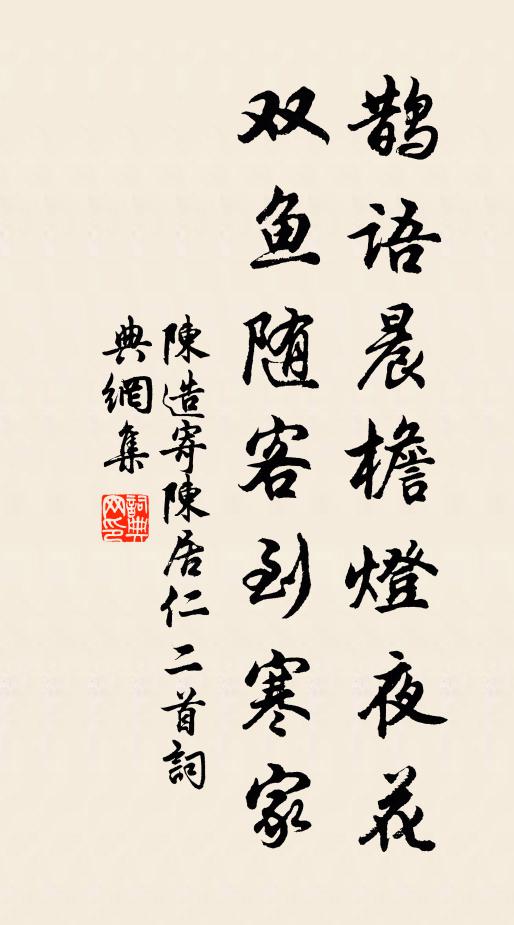 鹊语晨檐燈夜花
双鱼随客到寒家
陳造寄陳居仁二首詞
典網集
詞典网印